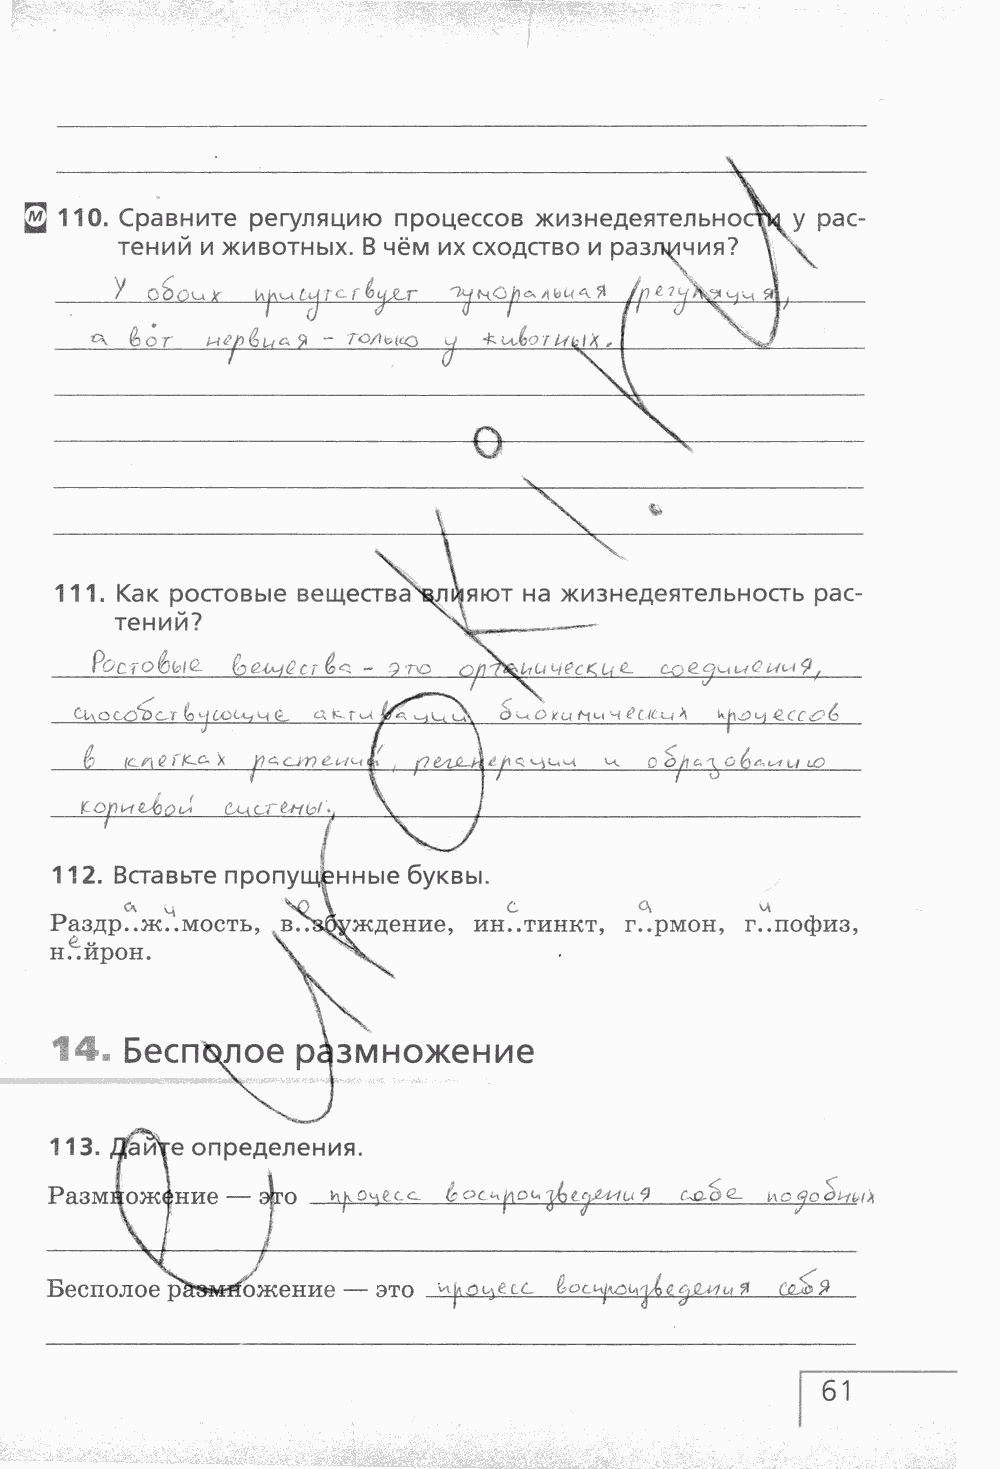 М 110. Сравните регуляцию процессов жизнедеятельности у рас-
тений и животных. В чём их сходство и различия?
У обоих присутствует гуморальная регуляция,
а вот нервная - только у животных.
111. Как ростовые вещества влияют на жизнедеятельность рас-
тений?
Ростовые вещества - это органические соединения,
способствующие активации биохимических процессов
в клетках растений, регенерации и образованию
корневой системы.
112. Вставьте пропущенные буквы.
Раздр..ж..мость, в..збуждение, ин..тинкт, г..рмон, г..пофиз,
а и о с а и
н..йрон.
е
14. Бесполое размножение
113. Дайте определения.
Размножение — это процесс воспроизведения себе подобных
Бесполое размножение — это процесс воспроизведения себя
61
euroki.ru